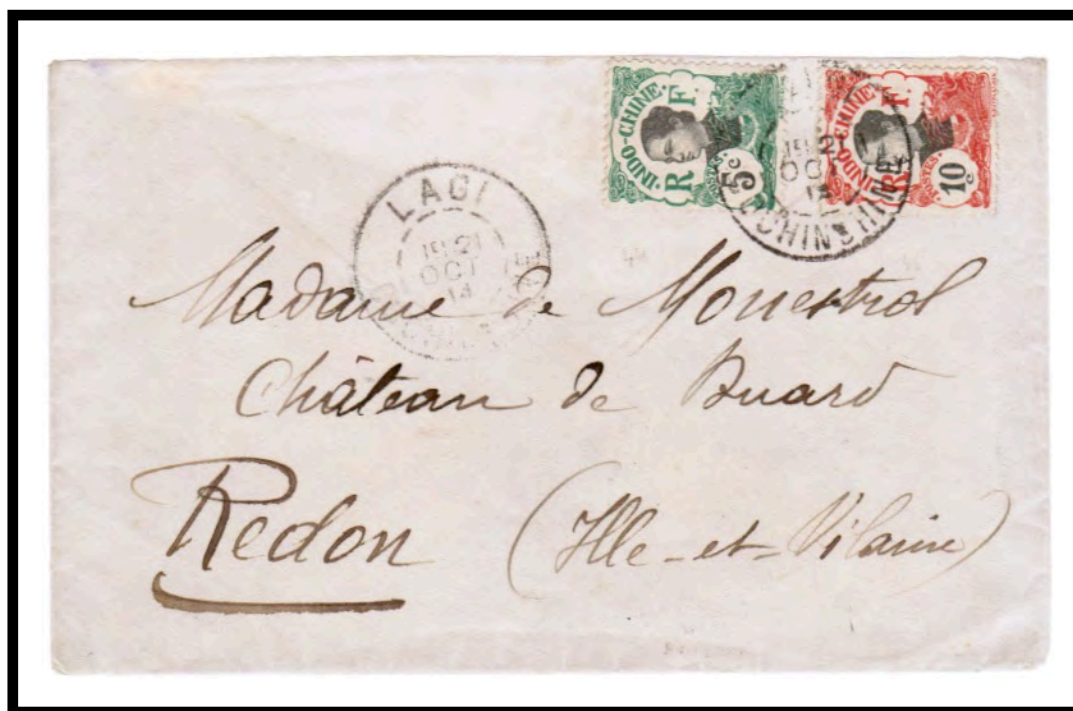 INDO-CHINE
R F
POSTES
5c
INDO-CHINE
R F
POSTES
10c
LAGI
19 21
OCT
14
19 21
OCT
14
COCHINCHINE
Madame de Monestrol
Château de Buard
Redon (Ille-et-Vilaine)